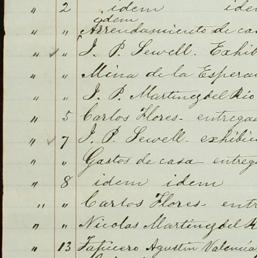 " 2 idem idem
idem
" " Arrendamiento de cas
" " J. P. Sewell. Exhib
" " Mina de la Espera
" " J. P. Martinez del Rio
" 5 Carlos Flores. entrega
" 7 J. P. Sewell. exhibic
" " Gastos de casa entreg
" 8 idem idem
" " Carlos Flores entre
" " Nicolas Martinez del R
" 13 Tapicero Agustin Valencia